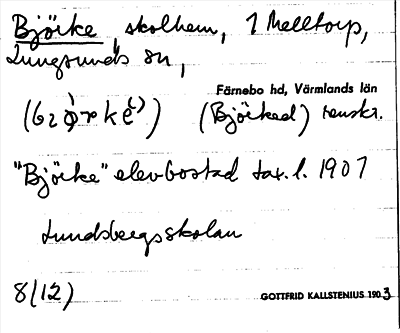 Björke, skolhem, 1 Melltorp,
Lungsunds sn,
Färnebo hd, Värmlands län
(Björked) renskr.
"Björke" elevbostad tax. l. 1907
Lundsbergsskolan
8(12)
GOTTFRID KALLSTENIUS 1903